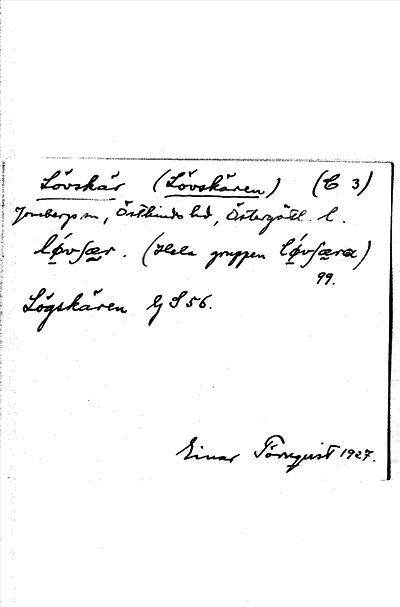 Lövskär (Lövskären) (C 3)
Jonsbergs sn, Östkinds hd, Östergötl. l.
lǿvʃær. (Hela gruppen lǿvʃæra)
99.
Lögskären GS 56.
Einar Törnquist 1927.